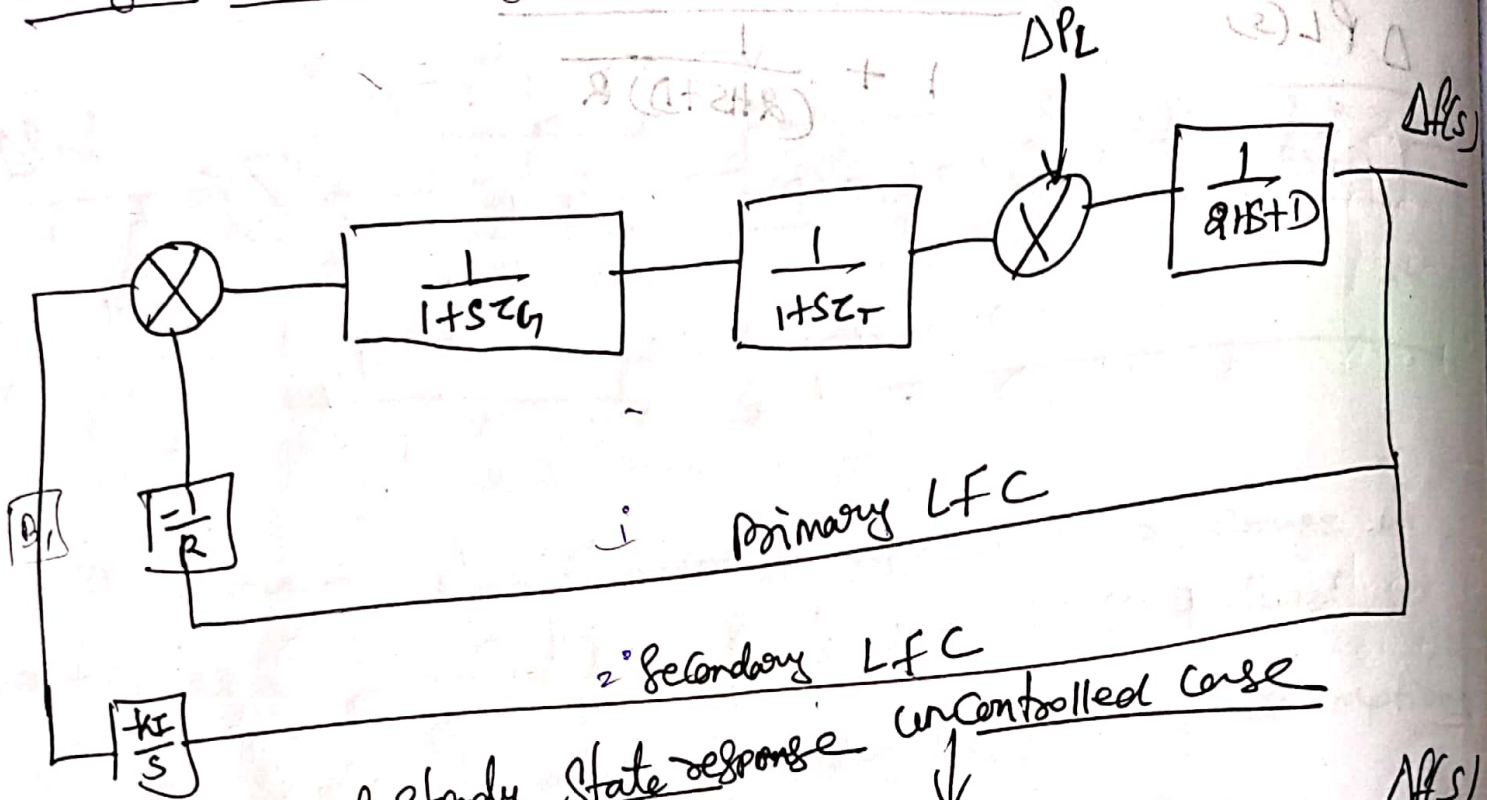 ΔPL
Δf(s)
1/(2HS+D)
1/(1+SτG)
1/(1+SτT)
B1
-1/R
i Primary LFC
2° Secondary LFC
-KI/S
Steady State response uncontrolled case
Δf(s)